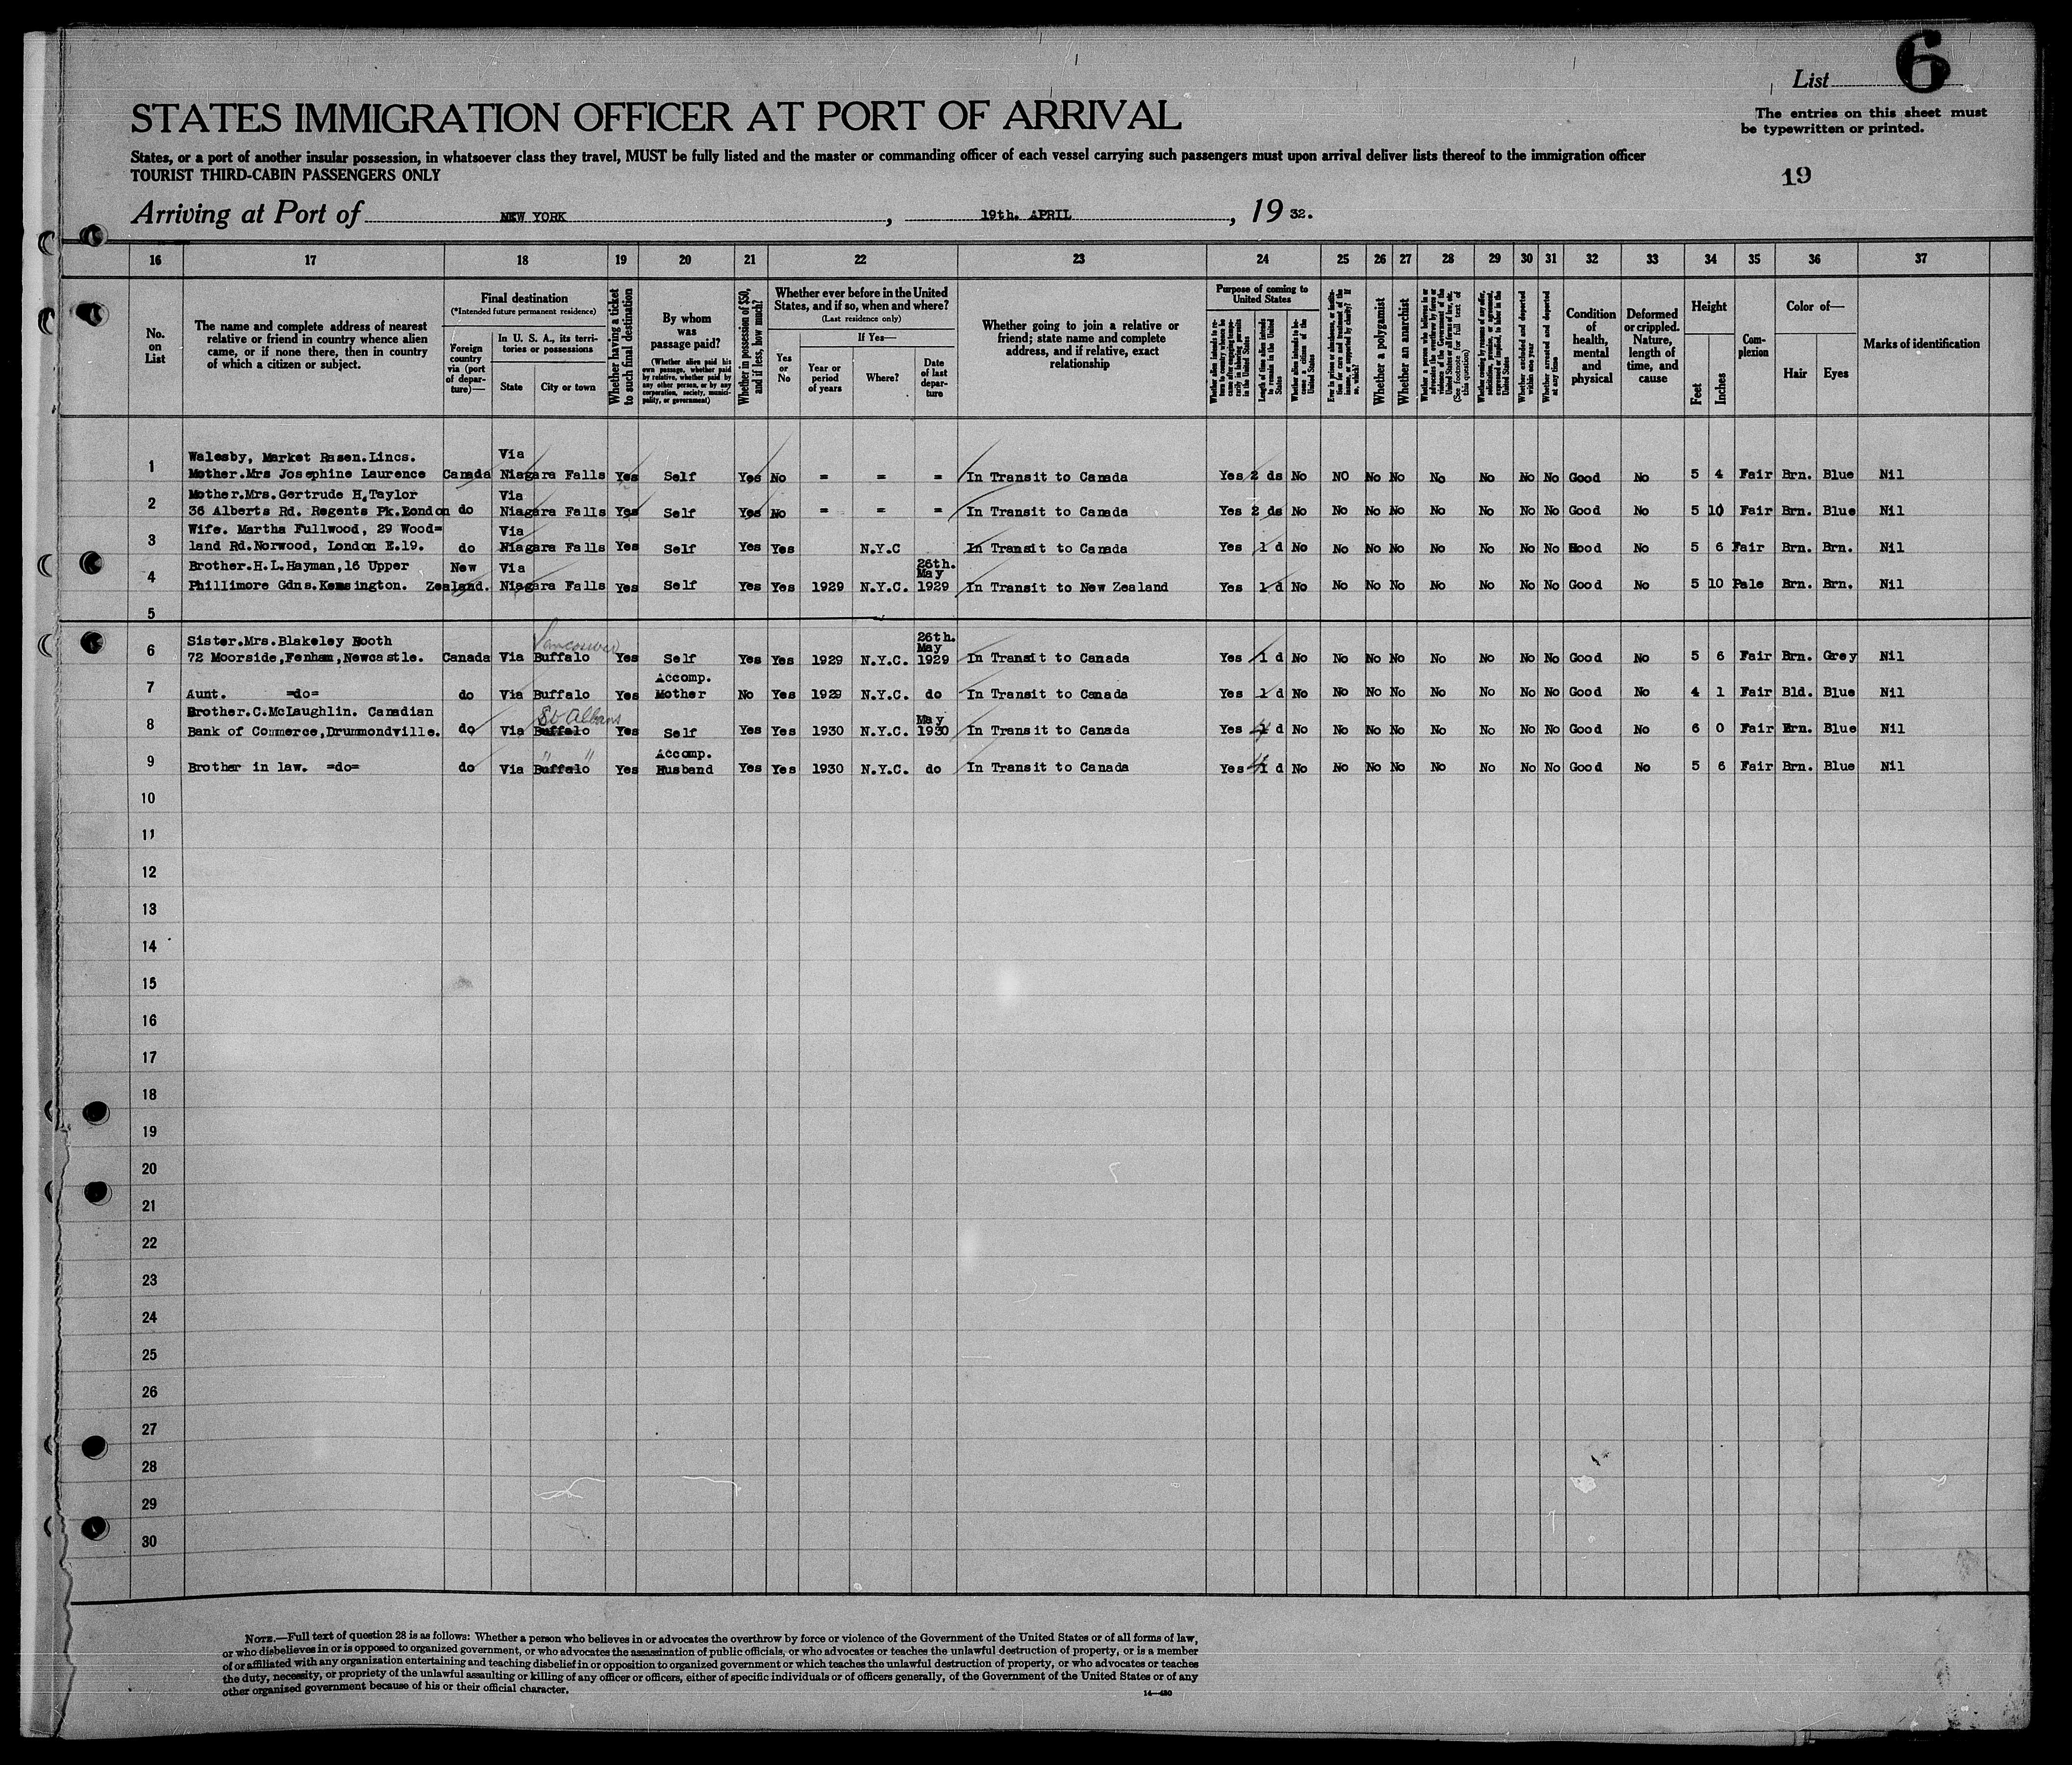 List 6
STATES IMMIGRATION OFFICER AT PORT OF ARRIVAL
The entries on this sheet must
be typewritten or printed.
States, or a port of another insular possession, in whatsoever class they travel, MUST be fully listed and the master or commanding officer of each vessel carrying such passengers must upon arrival deliver lists thereof to the immigration officer
TOURIST THIRD-CABIN PASSENGERS ONLY
19
Arriving at Port of NEW YORK, 19th. APRIL, 19 32.
16 17 18 19 20 21 22 23 24 25 26 27 28 29 30 31 32 33 34 35 36 37
No. on List
The name and complete address of nearest
relative or friend in country whence alien
came, or if none there, then in country
of which a citizen or subject.
Final destination
(*Intended future permanent residence)
Foreign country via (port of departure)—
In U. S. A., its territories or possessions
State City or town
Whether having a ticket to such final destination
By whom was passage paid?
(Whether alien paid his own passage, whether paid by relative, whether paid by any other person, or by any corporation, society, municipality, or government)
Whether in possession of $50, and if less, how much?
Whether ever before in the United
States, and if so, when and where?
(Last residence only)
Yes or No
If Yes—
Year or period of years
Where?
Date of last departure
Whether going to join a relative or
friend; state name and complete
address, and if relative, exact
relationship
Purpose of coming to United States
Length of time alien intends to remain in the United States
Whether alien intends to become a citizen of the United States
Whether a polygamist
Whether an anarchist
Whether excluded and deported within one year
Whether arrested and deported at any time
Condition of health, mental and physical
Deformed or crippled. Nature, length of time, and cause
Height
Feet Inches
Complexion
Color of—
Hair Eyes
Marks of identification
Walesby, Market Rasen.Lincs. Via
1 Mother.Mrs Josephine Laurence Canada Niagara Falls Yes Self Yes No = = = In Transit to Canada Yes 2 ds No NO No No No No No No Good No 5 4 Fair Brn. Blue Nil
Mother.Mrs.Gertrude H.Taylor Via
2 36 Alberts Rd. Regents Pk.London do Niagara Falls Yes Self Yes No = = = In Transit to Canada Yes 2 ds No No No No No No No No Good No 5 10 Fair Brn. Blue Nil
Wife. Martha Fullwood, 29 Wood= Via
3 land Rd.Norwood, London E.19. do Niagara Falls Yes Self Yes Yes N.Y.C In Transit to Canada Yes 1 d No No No No No No No No Good No 5 6 Fair Brn. Brn. Nil
Brother.H.L.Hayman,16 Upper New Via 26th. May
4 Phillimore Gdns.Kensington. Zealand. Niagara Falls Yes Self Yes Yes 1929 N.Y.C. 1929 In Transit to New Zealand Yes 1 d No No No No No No No No Good No 5 10 Pale Brn. Brn. Nil
5
Sister.Mrs.Blakeley Booth Vancouver 26th. May
6 72 Moorside,Fenham,Newcastle. Canada Via Buffalo Yes Self Yes Yes 1929 N.Y.C. 1929 In Transit to Canada Yes 1 d No No No No No No No No Good No 5 6 Fair Brn. Grey Nil
Accomp.
7 Aunt. =do= do Via Buffalo Yes Mother No Yes 1929 N.Y.C. do In Transit to Canada Yes 1 d No No No No No No No No Good No 4 1 Fair Bld. Blue Nil
Brother.C.McLaughlin. Canadian St Albans May
8 Bank of Commerce,Drummondville. do Via Buffalo Yes Self Yes Yes 1930 N.Y.C. 1930 In Transit to Canada Yes 4 d No No No No No No No No Good No 6 0 Fair Brn. Blue Nil
" " Accomp.
9 Brother in law. =do= do Via Buffalo Yes Husband Yes Yes 1930 N.Y.C. do In Transit to Canada Yes 4 1 d No No No No No No No No Good No 5 6 Fair Brn. Blue Nil
10
11
12
13
14
15
16
17
18
19
20
21
22
23
24
25
26
27
28
29
30
NOTE.—Full text of question 28 is as follows: Whether a person who believes in or advocates the overthrow by force or violence of the Government of the United States or of all forms of law,
or who disbelieves in or is opposed to organized government, or who advocates the assassination of public officials, or who advocates or teaches the unlawful destruction of property, or is a member
of or affiliated with any organization entertaining and teaching disbelief in or opposition to organized government or which teaches the unlawful destruction of property, or who advocates or teaches
the duty, necessity, or propriety of the unlawful assaulting or killing of any officer or officers, either of specific individuals or of officers generally, of the Government of the United States or of any
other organized government because of his or their official character.
14—480